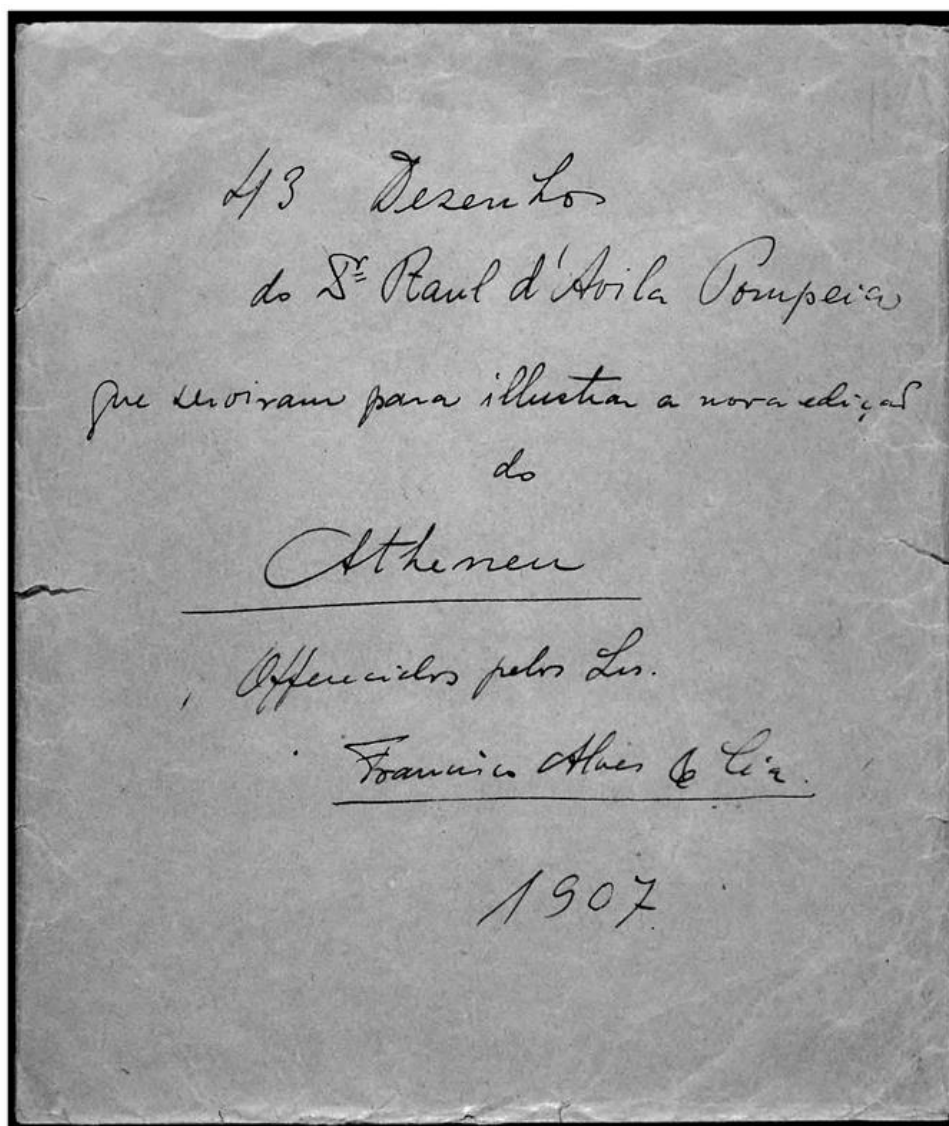 43 Desenhos
do Dr Raul d'Avila Pompeia
que serviram para illustrar a nova edição
do
Atheneu
Offerecidos pelos Srs.
Francisco Alves & Cia.
1907.